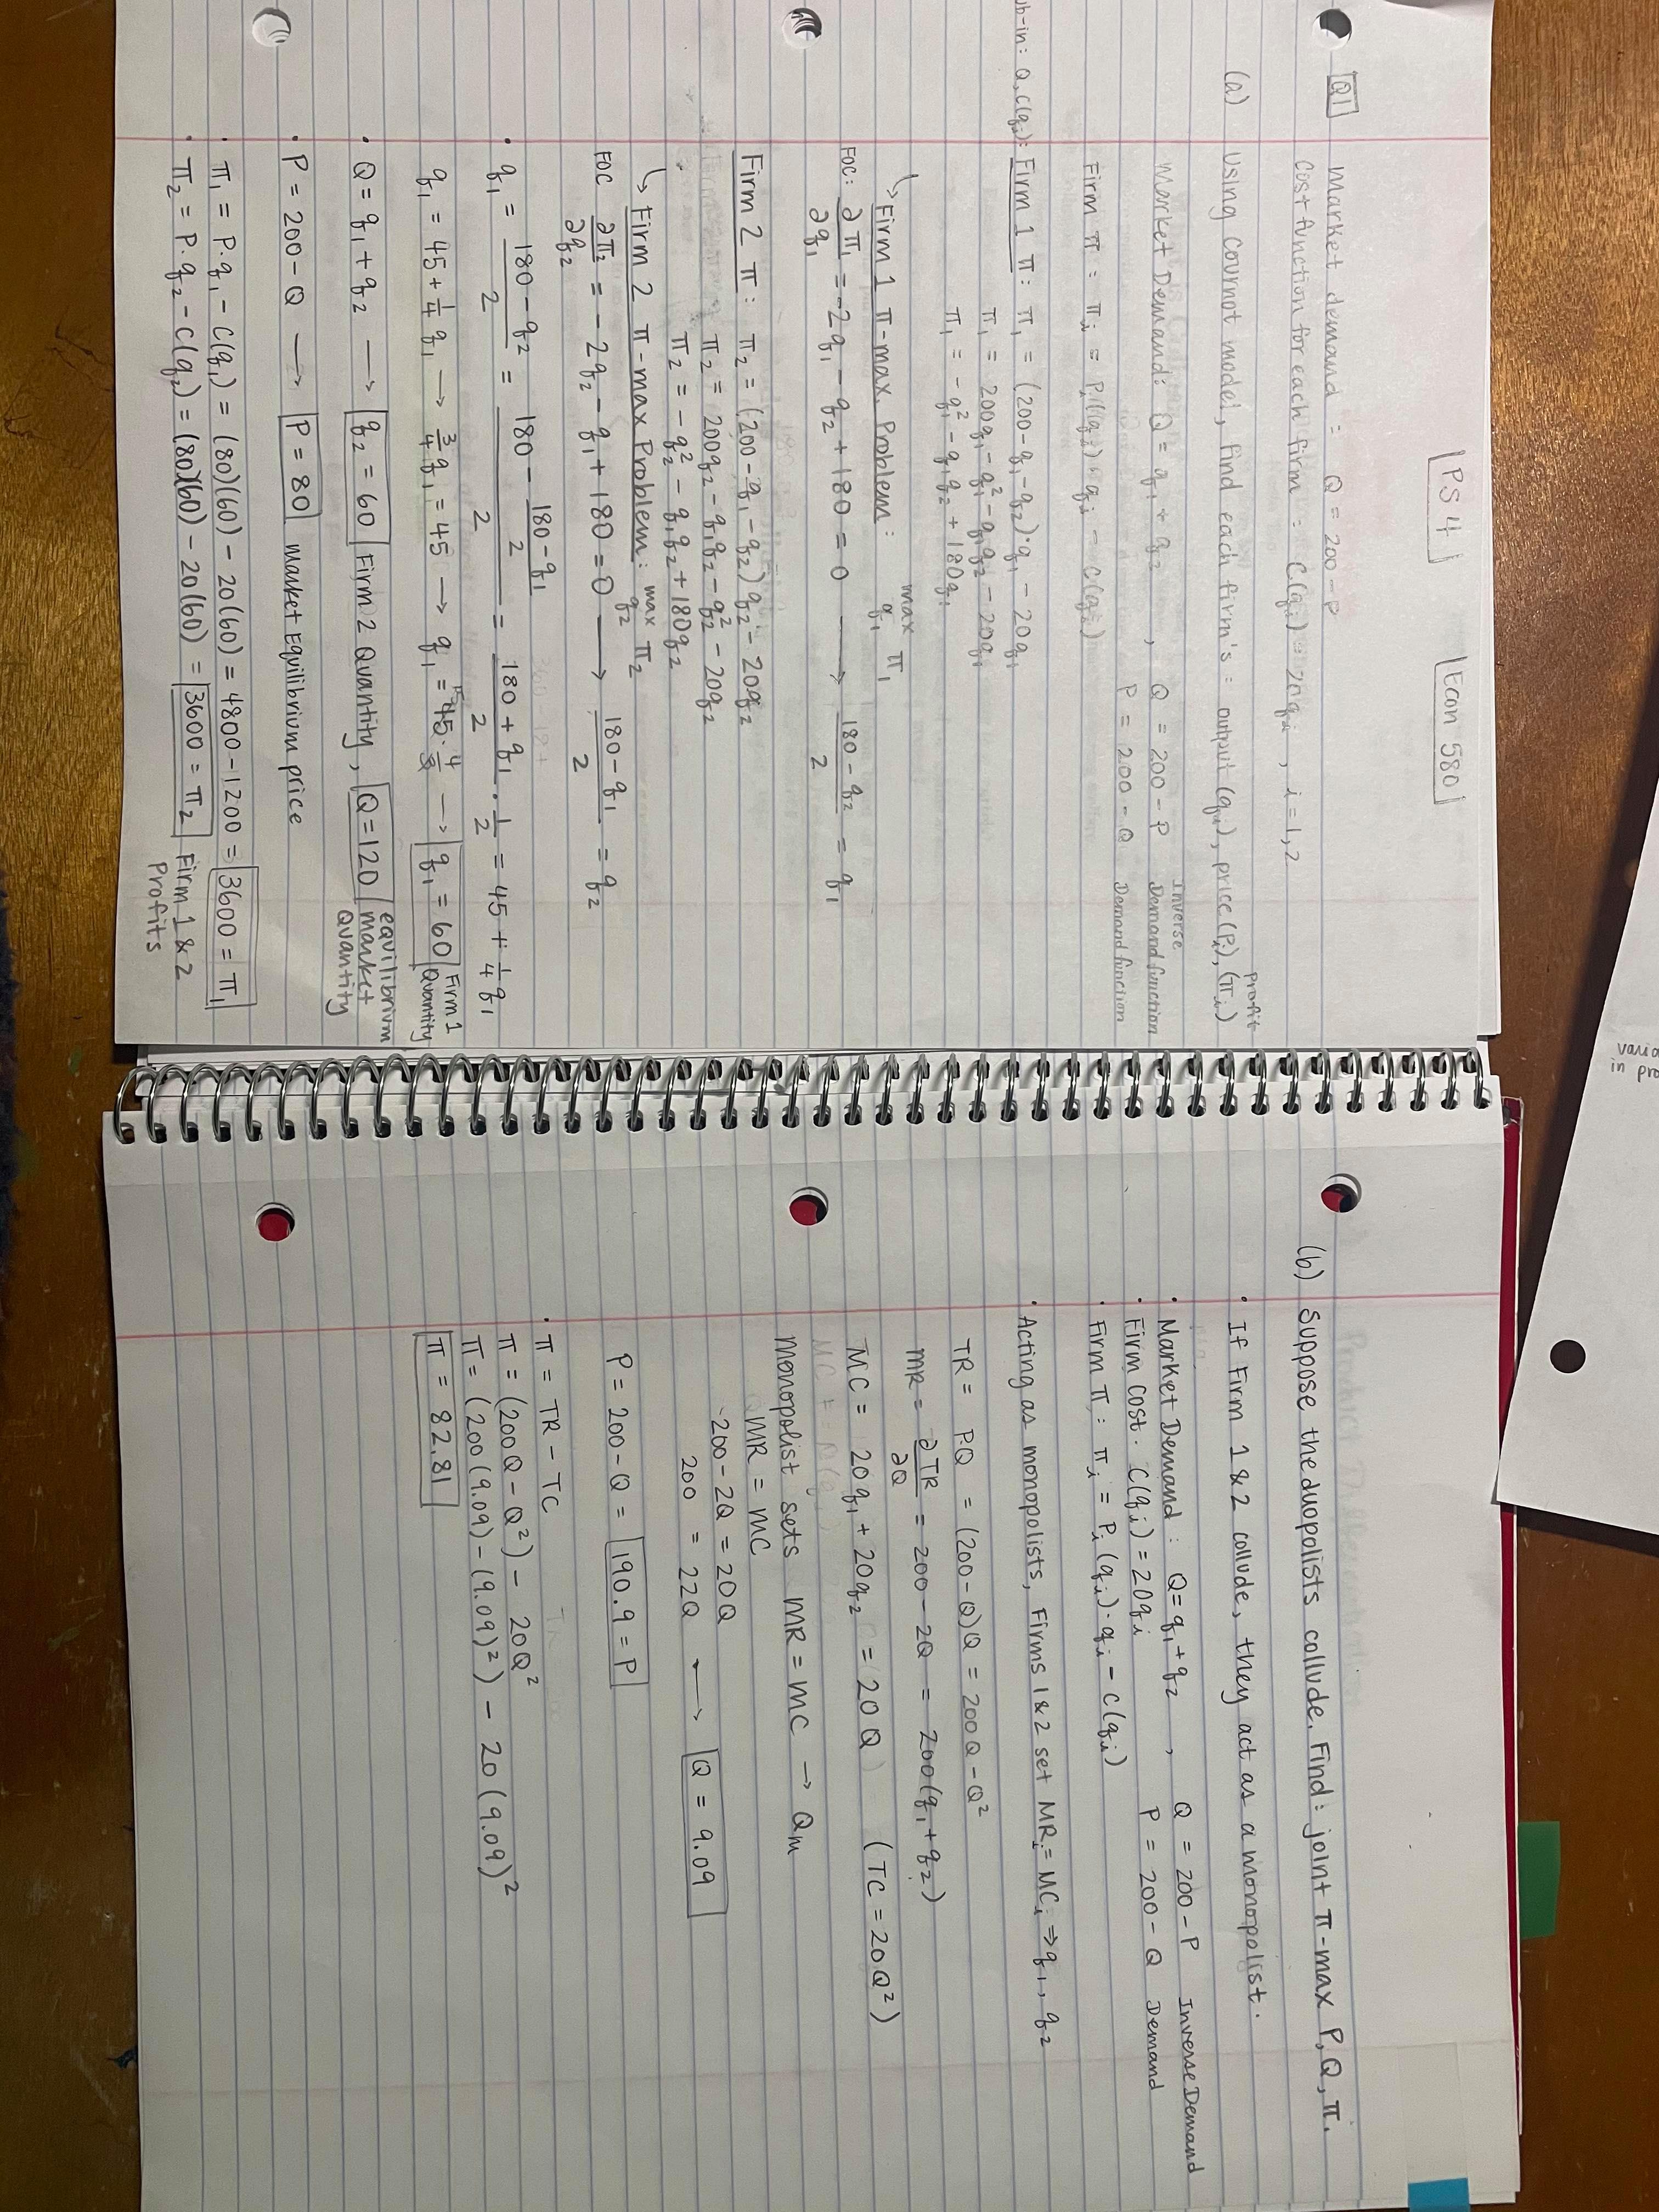 PS 4 Econ 580
Q1 Market demand : Q = 200 - P
Cost function for each firm : C(qᵢ) = 20qᵢ , i = 1, 2
(a) Using Cournot model, find each firm's = output (qᵢ), price (Pᵢ), profit (πᵢ)
Market Demand: Q = q₁ + q₂ , Q = 200 - P Inverse Demand function
P = 200 - Q Demand function
Firm π : πᵢ = Pᵢ(qᵢ)·qᵢ - C(qᵢ)
ub-in: Q, C(qᵢ): Firm 1 π: π₁ = (200 - q₁ - q₂)·q₁ - 20q₁
π₁ = 200q₁ - q₁² - q₁q₂ - 20q₁
π₁ = -q₁² - q₁q₂ + 180q₁
↳ Firm 1 π-max. Problem : max q₁ π₁
FOC: ∂π₁/∂q₁ = -2q₁ - q₂ + 180 = 0 → (180 - q₂)/2 = q₁
Firm 2 π: π₂ = (200 - q₁ - q₂) q₂ - 20q₂
π₂ = 200q₂ - q₁q₂ - q₂² - 20q₂
π₂ = -q₂² - q₁q₂ + 180q₂
↳ Firm 2 π-max Problem: max q₂ π₂
FOC ∂π₂/∂q₂ = -2q₂ - q₁ + 180 = 0 → (180 - q₁)/2 = q₂
• q₁ = (180 - q₂)/2 = (180 - (180 - q₁)/2)/2 = (180 + q₁)/2 · 1/2 = 45 + 1/4 q₁
q₁ = 45 + 1/4 q₁ → 3/4 q₁ = 45 → q₁ = 45 · 4/3 → q₁ = 60 Firm 1 Quantity
• Q = q₁ + q₂ → q₂ = 60 Firm 2 Quantity, Q = 120 equilibrium market Quantity
• P = 200 - Q → P = 80 market Equilibrium price
• π₁ = P·q₁ - C(q₁) = (80)(60) - 20(60) = 4800 - 1200 = 3600 = π₁
• π₂ = P·q₂ - C(q₂) = (80)(60) - 20(60) = 3600 = π₂ Firm 1 & 2 Profits
(b) Suppose the duopolists collude. Find: joint π-max P, Q, π.
• If Firm 1 & 2 collude, they act as a monopolist.
• Market Demand : Q = q₁ + q₂ , Q = 200 - P Inverse Demand
• Firm Cost. C(qᵢ) = 20qᵢ P = 200 - Q Demand
• Firm π : πᵢ = Pᵢ(qᵢ)·qᵢ - C(qᵢ)
• Acting as monopolists, Firms 1 & 2 set MRᵢ = MCᵢ ⇒ q₁, q₂
TR = P·Q = (200 - Q)Q = 200Q - Q²
MR = ∂TR/∂Q = 200 - 2Q = 200(q₁ + q₂)
MC = 20q₁ + 20q₂ = 20Q (TC = 20Q²)
Monopolist sets MR = MC → Qₘ
MR = MC
200 - 2Q = 20Q
200 = 22Q → Q = 9.09
P = 200 - Q = 190.9 = P
• π = TR - TC
π = (200Q - Q²) - 20Q²
π = (200(9.09) - (9.09)²) - 20(9.09)²
π = 82.81
varia
in pro